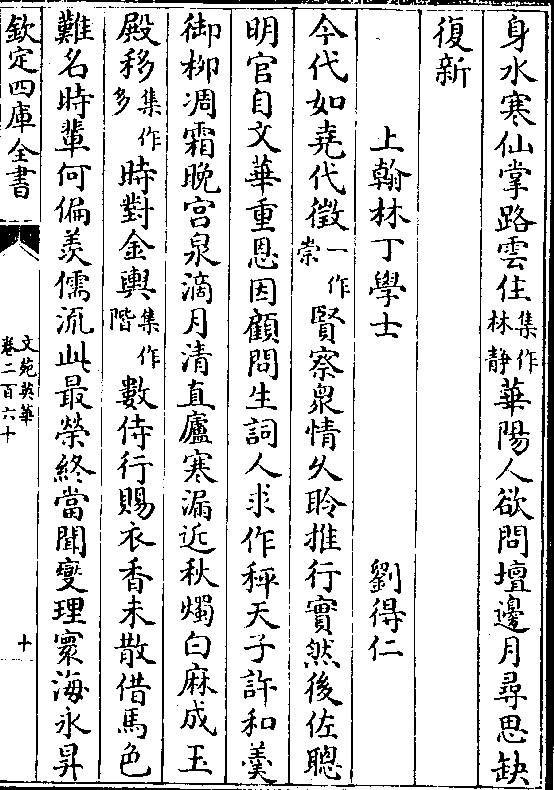 身水寒仙掌路雲住集作林靜華陽人欲問壇邊月尋思缺
復新
上翰林丁學士　劉得仁
今代如堯代徵一作崇賢察衆情久聆推行實然後佐聰
明官自文華重恩因顧問生詞人求作秤天子許和羹
御栁凋霜晚宫泉滴月清直廬寒漏近秋燭白麻成玉
殿移集作多時對金輿集作階數侍行賜衣香未散借馬色
難名時輩何偏羡儒流此最榮終當聞變理寰海永昇
欽定四庫全書
文苑英華
卷二百六十
十